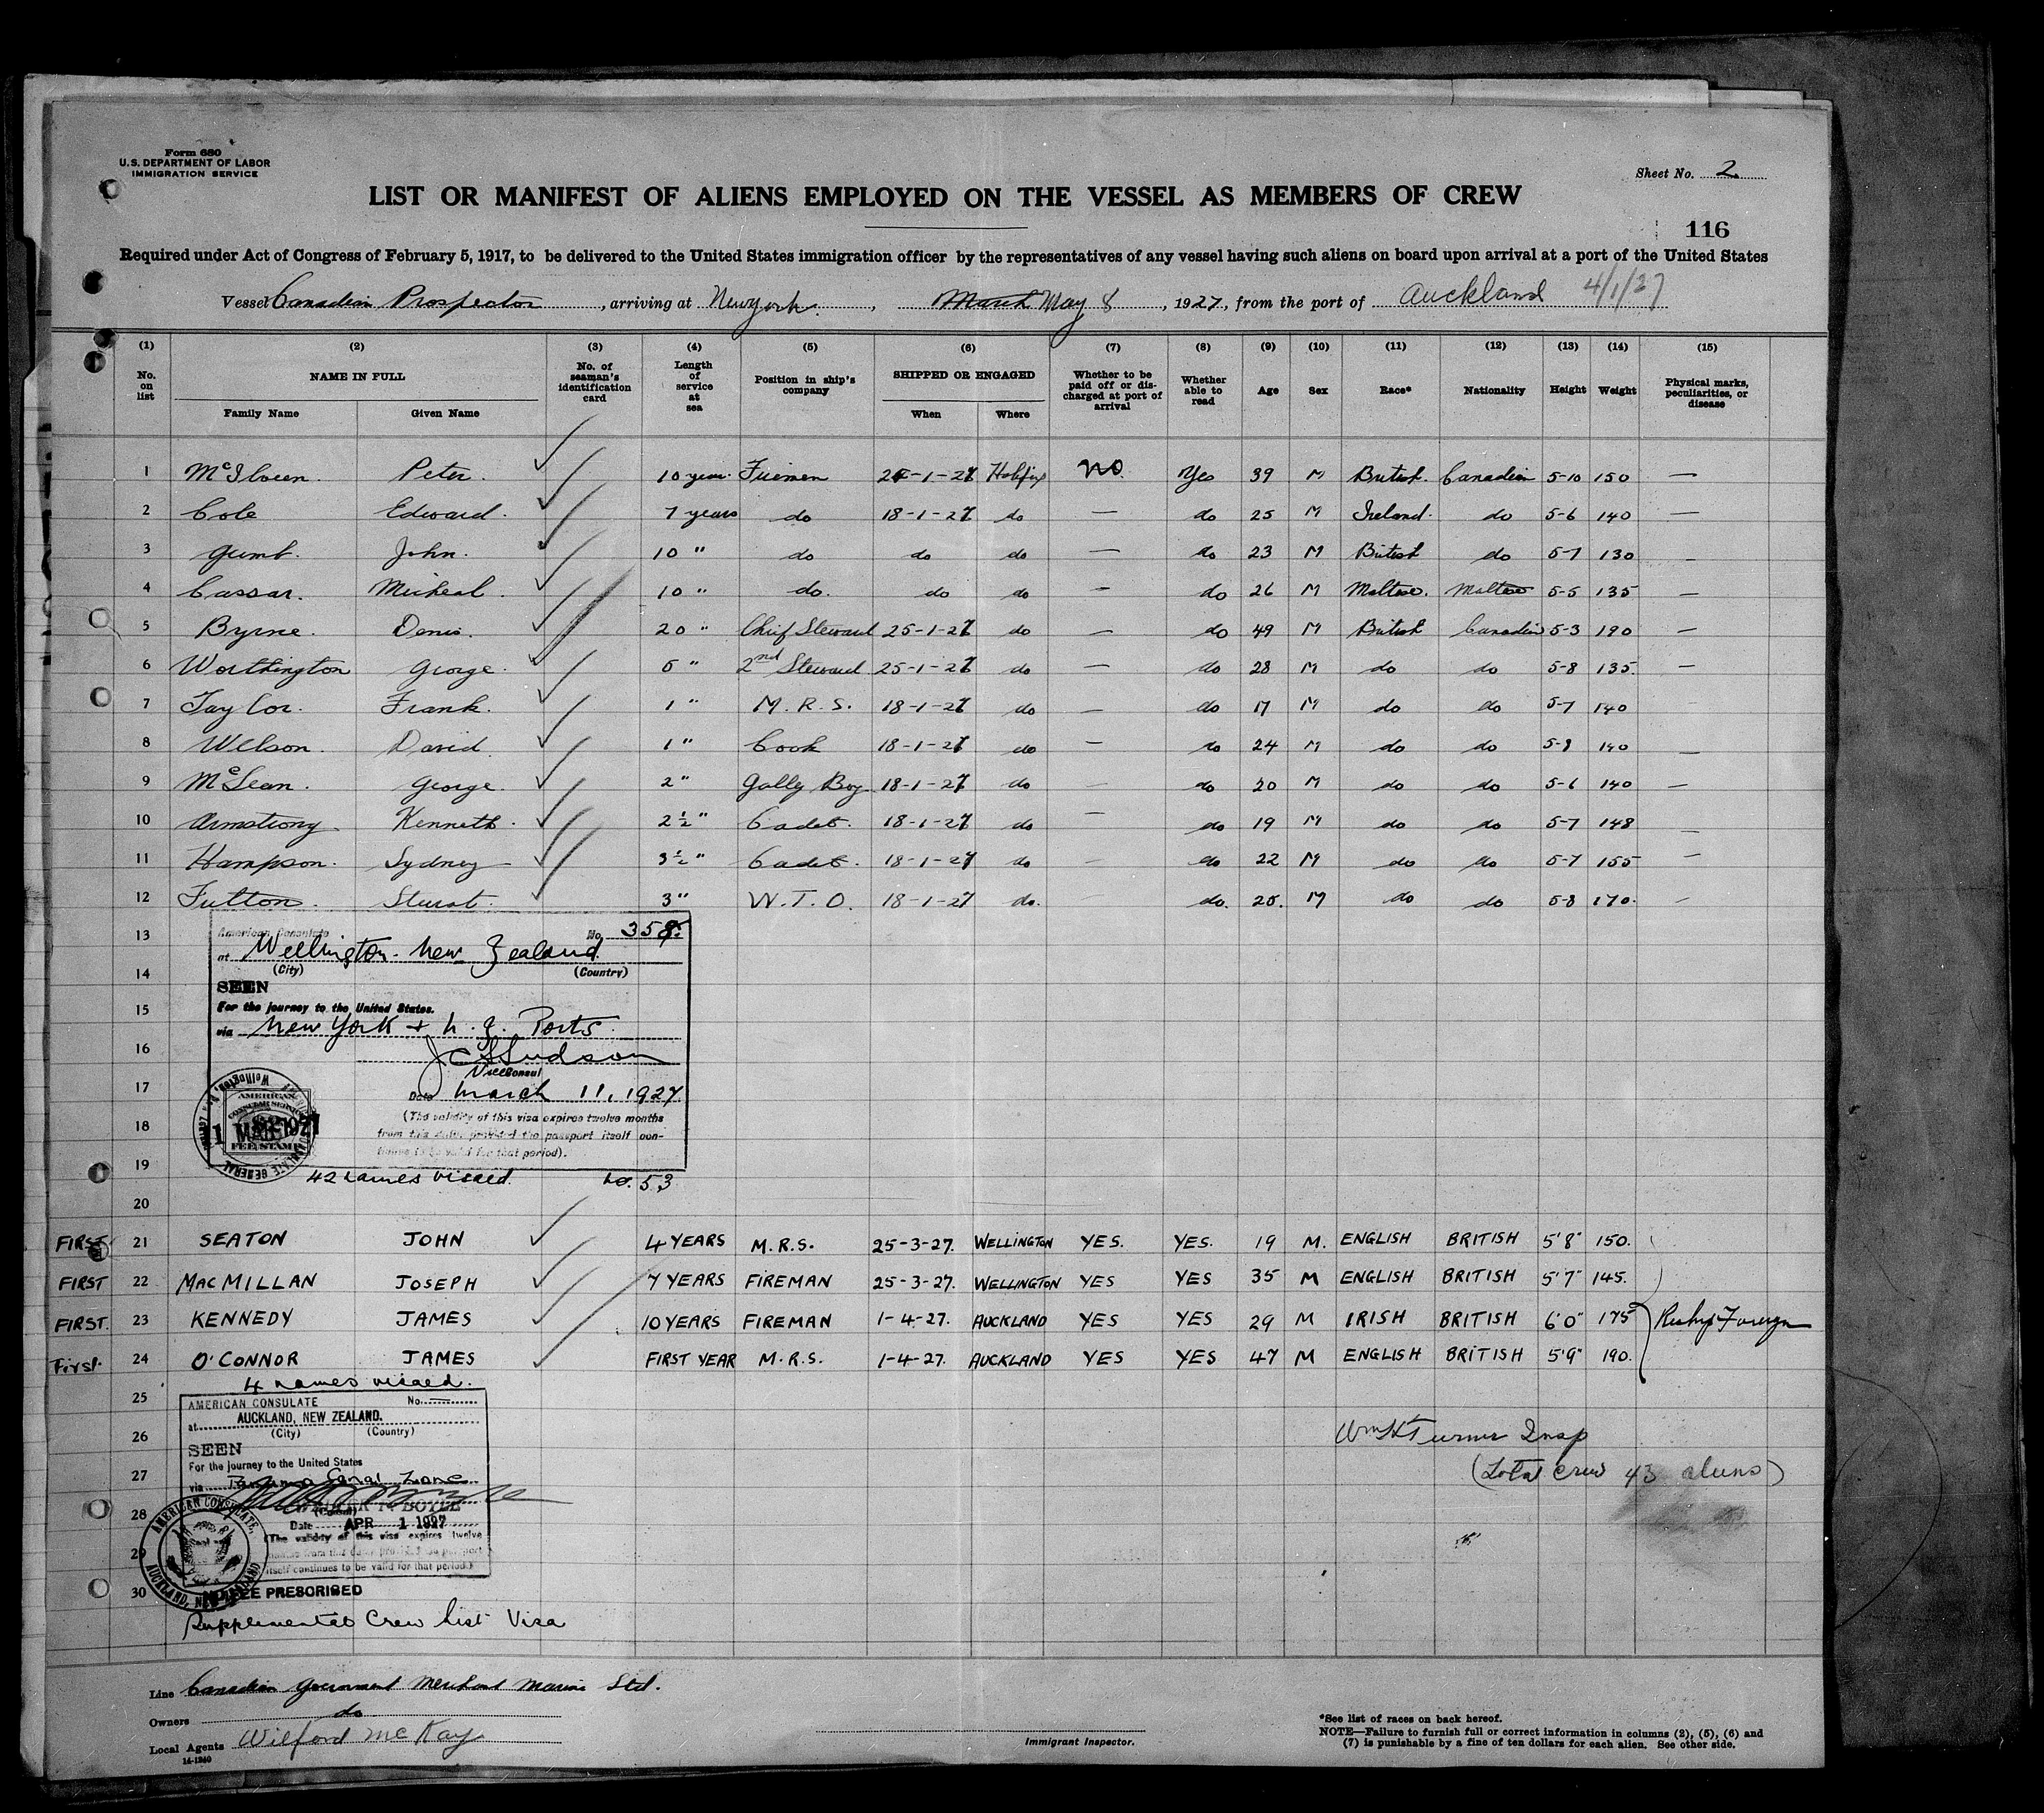 Form 680
U.S. DEPARTMENT OF LABOR
IMMIGRATION SERVICE
Sheet No. 2
LIST OR MANIFEST OF ALIENS EMPLOYED ON THE VESSEL AS MEMBERS OF CREW
116
Required under Act of Congress of February 5, 1917, to be delivered to the United States immigration officer by the representatives of any vessel having such aliens on board upon arrival at a port of the United States
Vessel Canadian Prospector, arriving at New york, March May 8, 1927, from the port of Auckland 4/1/27
(1) (2) (3) (4) (5) (6) (7) (8) (9) (10) (11) (12) (13) (14) (15)
No. on list NAME IN FULL Family Name Given Name No. of seaman's identification card Length of service at sea Position in ship's company SHIPPED OR ENGAGED When Where Whether to be paid off or discharged at port of arrival Whether able to read Age Sex Race* Nationality Height Weight Physical marks, peculiarities, or disease
1 Peter 10 year Firemen -1-27 Halifax NO. Yes 39 M British. Canadian 5-10 150 —
2 Cole Edward. 7 years do 18-1-27 do — do 25 M Ireland. do 5-6 140 —
3 Gumb. John. 10 " do do do — do 23 M British do 5-7 130 —
4 Cassar. Micheal. 10 " do. do do — do 26 M Maltese. Maltese 5-5 135 —
5 Byrne. Denis. 20 " Chief Steward 25-1-27 do — do 49 M British Canadian 5-3 190 —
6 Worthington George. 5 " 2nd Steward 25-1-27 do — do 28 M do do 5-8 135. —
7 Taylor. Frank. 1 " M.R.S. 18-1-27 do — do 17 M do do 5-7 140
8 Wilson. David. 1 " Cook 18-1-27 do — do 24 M do do 140 —
9 McLean. George. 2 " Gally Boy 18-1-27 do — do 20 M do do 5-6 140 —
10 Armstrong Kenneth. 2½ " Cadet. 18-1-27 do — do 19 M do do 5-7 148 —
11 Hampson. Sydney 3½ " Cadet. 18-1-27 do — do 22 M do do 5-7 155 —
12 Fulton. Sturat. 3 " W.T.O. 18-1-27 do. do. 25. M do do 5-8 170. —
13
American Consulate No. 358.
at Wellington - New Zealand.
14
(City) (Country)
SEEN
15
For the journey to the United States.
via New York + N.Z. Ports.
16
Vice Consul
17
Date March 11, 1927
18
(The validity of this visa expires twelve months
from this date provided the passport itself con-
tinues to be valid for that period).
AMERICAN CONSULAR SERVICE FEE STAMP
11 MAR 1927
19
42 names visaed. No. 53
20
FIRST 21 SEATON JOHN 4 YEARS M.R.S. 25-3-27. WELLINGTON YES. YES. 19 M. ENGLISH BRITISH 5'8" 150.
FIRST 22 MACMILLAN JOSEPH 7 YEARS FIREMAN 25-3-27. WELLINGTON YES YES 35 M ENGLISH BRITISH 5'7" 145.
FIRST. 23 KENNEDY JAMES 10 YEARS FIREMAN 1-4-27. AUCKLAND YES YES 29 M IRISH BRITISH 6'0" 175 Reship Foreign
First. 24 O'CONNOR JAMES FIRST YEAR M.R.S. 1-4-27. AUCKLAND YES YES 47 M ENGLISH BRITISH 5'9" 190.
4 names visaed.
25
AMERICAN CONSULATE No.
at AUCKLAND, NEW ZEALAND.
26
(City) (Country)
Turner Insp
SEEN
27
For the journey to the United States
via Panama Canal Zone
(Total crew 43 aliens)
28
BOYLE
(Consul)
Date APR 1 1927
29
(The validity of this visa expires twelve
months from this date provided the passport
itself continues to be valid for that period.)
AMERICAN CONSULATE, AUCKLAND,
30
NO FEE PRESCRIBED
Supplemental Crew List Visa
Line Canadian Government Merchant Marine Ltd.
Owners do
Local Agents Wilford McKay
14-1240
Immigrant Inspector.
*See list of races on back hereof.
NOTE—Failure to furnish full or correct information in columns (2), (5), (6) and
(7) is punishable by a fine of ten dollars for each alien. See other side.